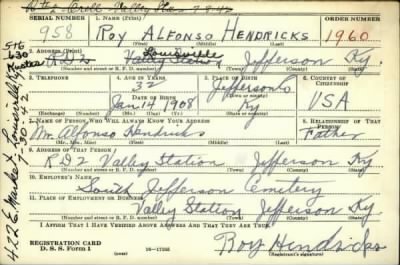 SERIAL NUMBER 1. NAME (Print) ORDER NUMBER
958 ROY ALFONSO HENDRICKS 1960
2. ADDRESS (Print)
Louisville
R.D 2 Valley Station Jefferson Ky.
(Number and street or R. F. D. number) (Town) (County) (State)
3. TELEPHONE 4. AGE IN YEARS 5. PLACE OF BIRTH 6. COUNTRY OF CITIZENSHIP
32 Jefferson Co
DATE OF BIRTH
Jan 14 1908 Ky USA
(Exchange) (No.) (Mo.) (Day) (Yr.) (State or country)
7. NAME OF PERSON WHO WILL ALWAYS KNOW YOUR ADDRESS 8. RELATIONSHIP OF THAT PERSON
Mr. Alfonso Hendricks Father
(Mr., Mrs., Miss) (First) (Middle) (Last)
9. ADDRESS OF THAT PERSON
RD2 Valley Station Jefferson Ky
(Number and street or R. F. D. number) (Town) (County) (State)
10. EMPLOYER'S NAME
South Jefferson Cemetery
11. PLACE OF EMPLOYMENT OR BUSINESS
Valley Station Jefferson Ky
(Number and street or R. F. D. number) (Town) (County) (State)
I AFFIRM THAT I HAVE VERIFIED ABOVE ANSWERS AND THAT THEY ARE TRUE.
REGISTRATION CARD
D. S. S. Form 1
Roy Hendricks
422 E Market Louisville Ky
7-30-42